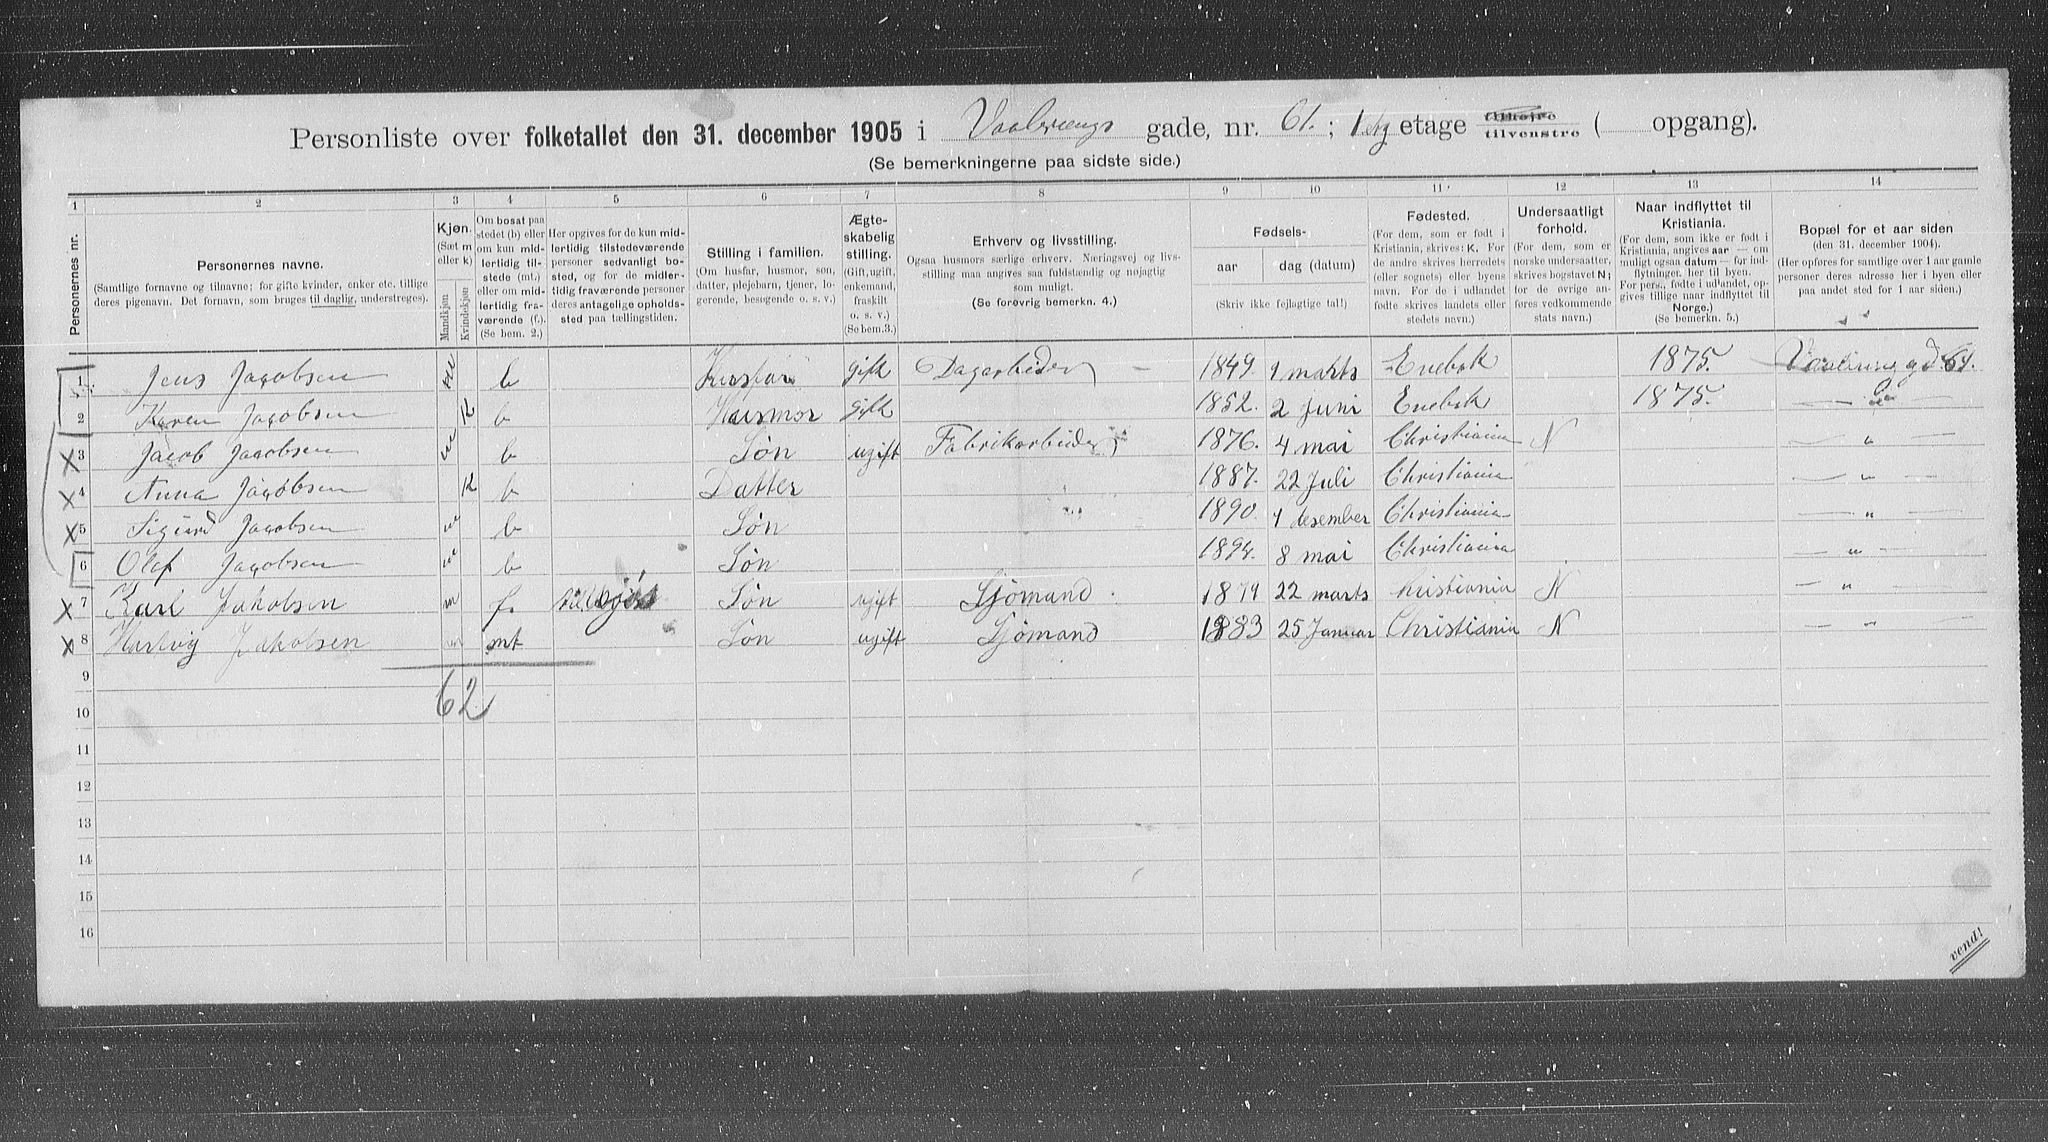 Personliste over folketallet den 31. december 1905 i Vaalerengs gade, nr. 61. ; 1 etg etage tilhøire tilvenstre ( opgang).
(Se bemerkningerne paa sidste side.)
1 2 3 4 5 6 7 8 9 10 11 12 13 14
Personernes nr.
Personernes navne.
(Samtlige fornavne og tilnavne; for gifte kvinder, enker etc. tillige
deres pigenavn. Det fornavn, som bruges til daglig, understreges).
Kjøn.
(Sæt m
eller k)
Mandkjøn
Kvindekjøn
Om bosat paa
stedet (b) eller
om kun mid-
lertidig til-
stede (mt.)
eller om mid-
lertidig fra-
værende (f.).
(Se bem. 2.)
Her opgives for de kun mid-
lertidig tilstedeværende
personer sedvanligt bo-
sted, og for de midler-
tidig fraværende personer
deres antagelige opholds-
sted paa tællingstiden.
Stilling i familien.
(Om husfar, husmor, søn,
datter, plejebarn, tjener, lo-
gerende, besøgende o. s. v.)
Ægte-
skabelig
stilling.
(Gift, ugift,
enkemand,
fraskilt
o. s. v.)
(Se bem.3.)
Erhverv og livsstilling.
Ogsaa husmors særlige erhverv. Næringsvej og livs-
stilling maa angives saa fuldstændig og nøjagtig
som muligt.
(Se forøvrig bemerkn. 4.)
Fødsels-
aar dag (datum)
(Skriv ikke fejlagtige tal!)
Fødested.
(For dem, som er født i
Kristiania, skrives: K. For
de andre skrives herredets
(eller sognets) eller byens
navn. For de i udlandet
fødte skrives landets eller
stedets navn.)
Undersaatligt
forhold.
(For dem, som er
norske undersaatter,
skrives bogstavet N;
for de øvrige an-
føres vedkommende
stats navn.)
Naar indflyttet til
Kristiania.
(For dem, som ikke er født i
Kristiania, angives aar — om
muligt ogsaa datum — for ind-
flytninger her til byen.
For pers., fødte i udlandet, op-
gives tillige naar indflyttet til
Norge.)
(Se bemerkn. 5.)
Bopæl for et aar siden
(den 31. december 1904).
(Her opføres for samtlige over 1 aar gamle
personer deres adresse her i byen eller
paa andet sted for 1 aar siden.)
1 Jens Jacobsen m b Husfar gift Dagarbeider 1849. 1 marts Enebak 1875. 61.
2 Karen Jacobsen K b Husmor gift 1852. 2 Juni Enebak 1875. — " —
X 3 Jacob Jacobsen m b Søn ugift Fabrikarbeider 1876. 4 mai Christiania N — " —
X 4 Anna Jacobsen K b Datter 1887. 22 Juli Christiania — " —
X 5 Sigurd Jacobsen m b Søn 1890. 1 desember Christiania — " —
6 Olaf Jacobsen m b Søn 1894. 8 mai Christiania — " —
X 7 Karl Jakobsen m f. Søn ugift Sjømand 1879 22 marts Kristiania N — " —
X 8 Hartvig Jakobsen m mt Søn ugift Sjømand 1883 25 Januar Christiania N — " —
9
62
10
11
12
13
14
15
16
vend!